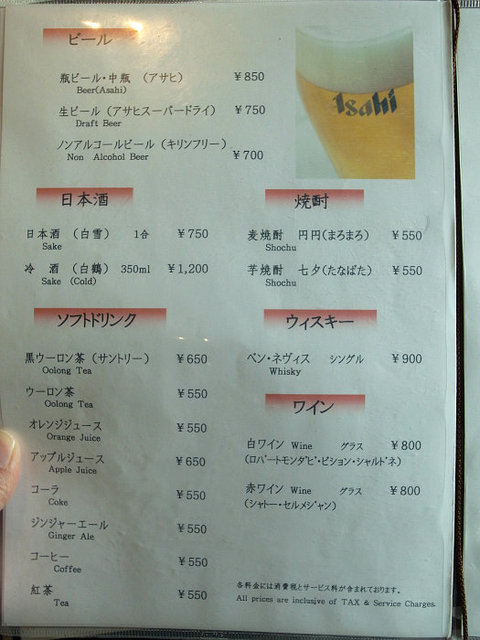 ビール
瓶ビール・中瓶 (アサヒ) ¥850
Beer(Asahi)
生ビール (アサヒスーパードライ) ¥750
Draft Beer
ノンアルコールビール (キリンフリー) ¥700
Non Alcohol Beer
Asahi
日本酒
日本酒 (白雪) 1合 ¥750
Sake
冷 酒 (白鶴) 350ml ¥1,200
Sake (Cold)
焼酎
麦焼酎 円円(まろまろ) ¥550
Shochu
芋焼酎 七夕(たなばた) ¥550
Shochu
ソフトドリンク
黒ウーロン茶 (サントリー) ¥650
Oolong Tea
ウーロン茶 ¥550
Oolong Tea
オレンジジュース ¥550
Orange Juice
アップルジュース ¥650
Apple Juice
コーラ ¥550
Coke
ジンジャーエール ¥550
Ginger Ale
コーヒー ¥550
Coffee
紅茶 ¥550
Tea
ウィスキー
ベン・ネヴィス シングル ¥900
Whisky
ワイン
白ワイン Wine グラス ¥800
(ロバートモンダビ・ビション・シャルドネ)
赤ワイン Wine グラス ¥800
(シャトー・セルメジャン)
各料金には消費税とサービス料が含まれております。
All prices are inclusive of TAX & Service Charges.